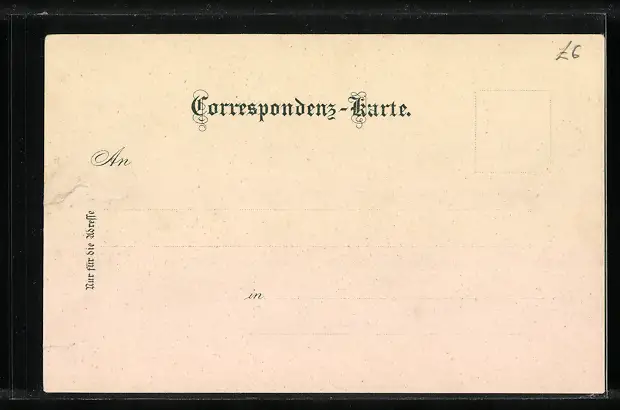 £6
Correspondenz-Karte.
An
Nur für die Adresse
in